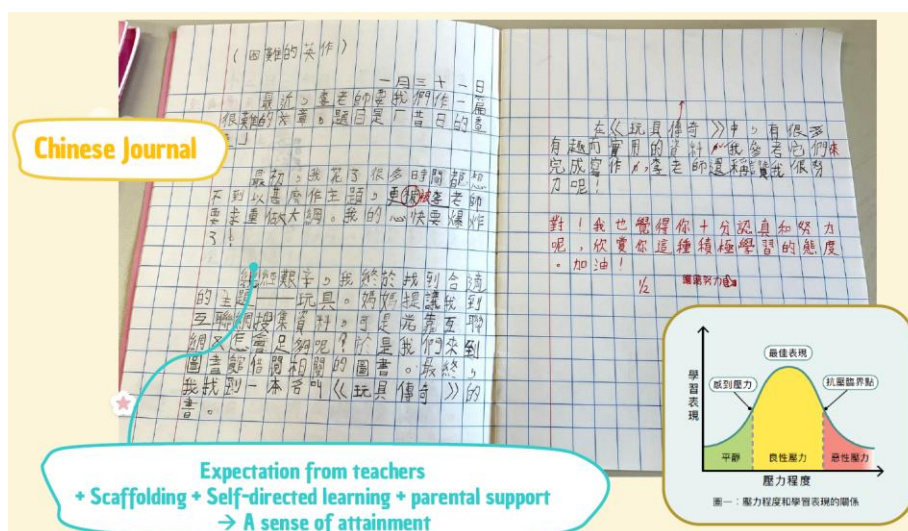 (困難的英作)
一月三十一日
最近，李老師要我們作一篇
很難的文章。題目是「昔日的
」
最初，我花了很多時間都想
不到以甚麼作主題，更被李老師
要求重做大綱。我的心快要爆炸
了！
經艱辛，我終於找到合適
的主題——玩具。媽媽提議我到
互聯網搜集資料。可是光靠互聯
網又怎會足夠呢？於是我們來到
圖書館借閱相關的圖書。最終，
我找到一本名叫《玩具傳奇》的
書。
在《玩具傳奇》中，有很多
有趣而實用的資料，我參考它們來
完成寫作，李老師還稱讚我很努
力呢！
對！我也覺得你十分認真和努力
呢，欣賞你這種積極學習的態度
。加油！
1/2
繼續努力
Chinese Journal
Expectation from teachers
+ Scaffolding + Self-directed learning + parental support
→ A sense of attainment
最佳表現
感到壓力
抗壓臨界點
學習表現
平靜
良性壓力
惡性壓力
壓力程度
圖一：壓力程度和學習表現的關係